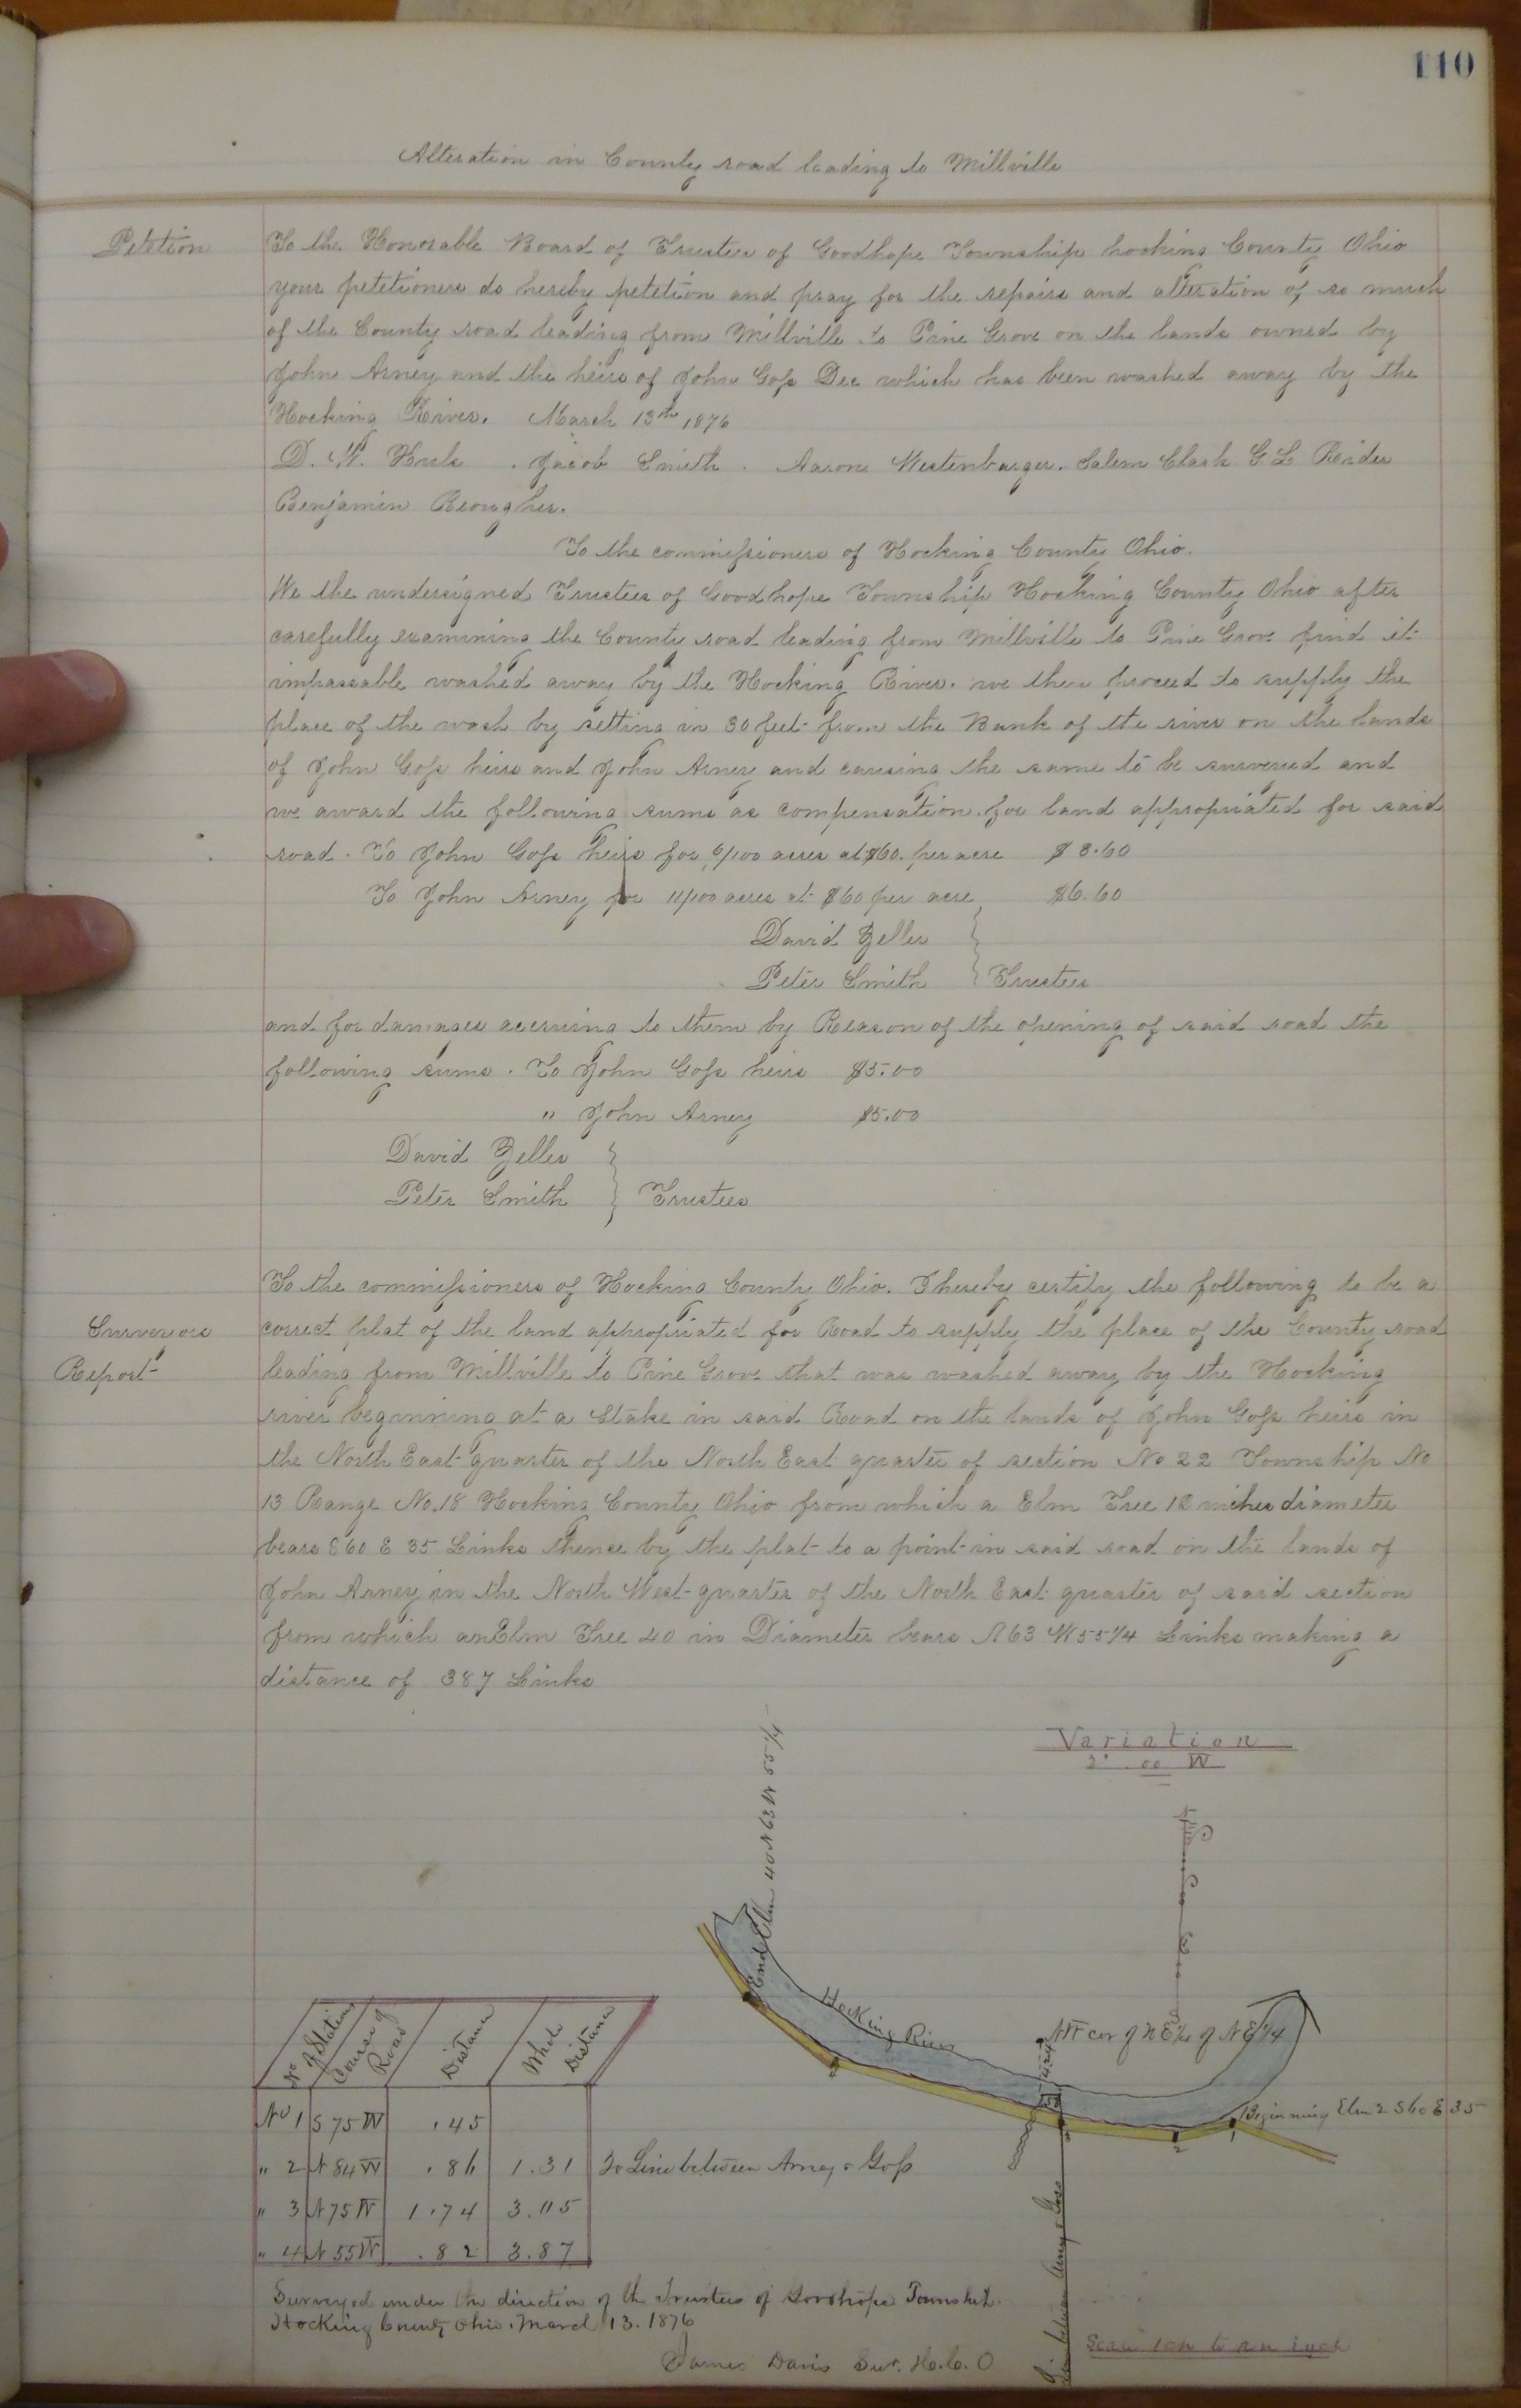 110
Alteration in County road leading to Millville
Petetion
To the Honorable Board of Trustees of Goodhope Township hocking County Ohio
your petetioners do hereby petetion and pray for the repairs and alteration of so much
of the County road leading from Millville to Pine Grove on the lands owned by
John Arney and the heirs of John Goss Dec which has been washed away by the
Hocking River. March 13th 1876
D. W. Huls . Jacob Smith . Aaron Westenbarger. Salem Clark G L Reider
Benjamin Reougher.
To the commissioners of Hocking County Ohio.
We the undersigned Trustees of Goodhope Township Hocking County Ohio after
carefully examining the County road leading from Millville to Pine Grove find it
impassable washed away by the Hocking River. we then proceed to supply the
place of the wash by setting in 30 feet from the Bank of the river on the lands
of John Goss heirs and John Arney and causing the same to be surveved and
we award the following sums as compensation for land appropriated for said
road. To John Goss heirs for 6/100 acres at $60. per acre $3.60
To John Arney for 11/100 acres at $60 per acre $6.60
David Zeller
Peter Smith } Trustees
and for damages accruing to them by Reason of the opening of said road the
following sums. To John Goss heirs $5.00
" John Arney $5.00
David Zeller
Peter Smith } Trustees
Surveyors
Report
To the commissioners of Hocking County Ohio. I hereby certify the following to be a
correct plat of the land appropriated for Road to supply the place of the County road
leading from Millville to Pine Grove that was washed away by the Hocking
river beginning at a Stake in said Road on the lands of John Goss heirs in
the North East quarter of the North East quarter of section No 22 Township No
13 Range No. 18 Hocking County Ohio from which a Elm Tree 12 inches diameter
bears S60 E 35 Links thence by the plat to a point in said road on the lands of
John Arney in the North West quarter of the North East quarter of said section
from which an Elm Tree 40 in Diameter bears N63 W 55 1/4 Links making a
distance of 387 Links
Variation
2° 00 W
End Elm 40 N 63 W 55 1/4
Hocking River
NW cor of N E 1/4 of N E 1/4
Beginning Elm 2 S60 E 35
Line between Arney & Goss
No of Station Course of Road Distance Whole Distance
No 1 S 75 W .45
" 2 N 84 W .86 1.31 To Line between Arney & Goss
" 3 N 75 W 1.74 3.05
" 4 N 55 W .82 3.87
Surveyed under the direction of the Trustees of Goodhope Township.
Hocking County Ohio. March 13. 1876
James Davis Sur. H. C. O
Scale 1 ch to an inch